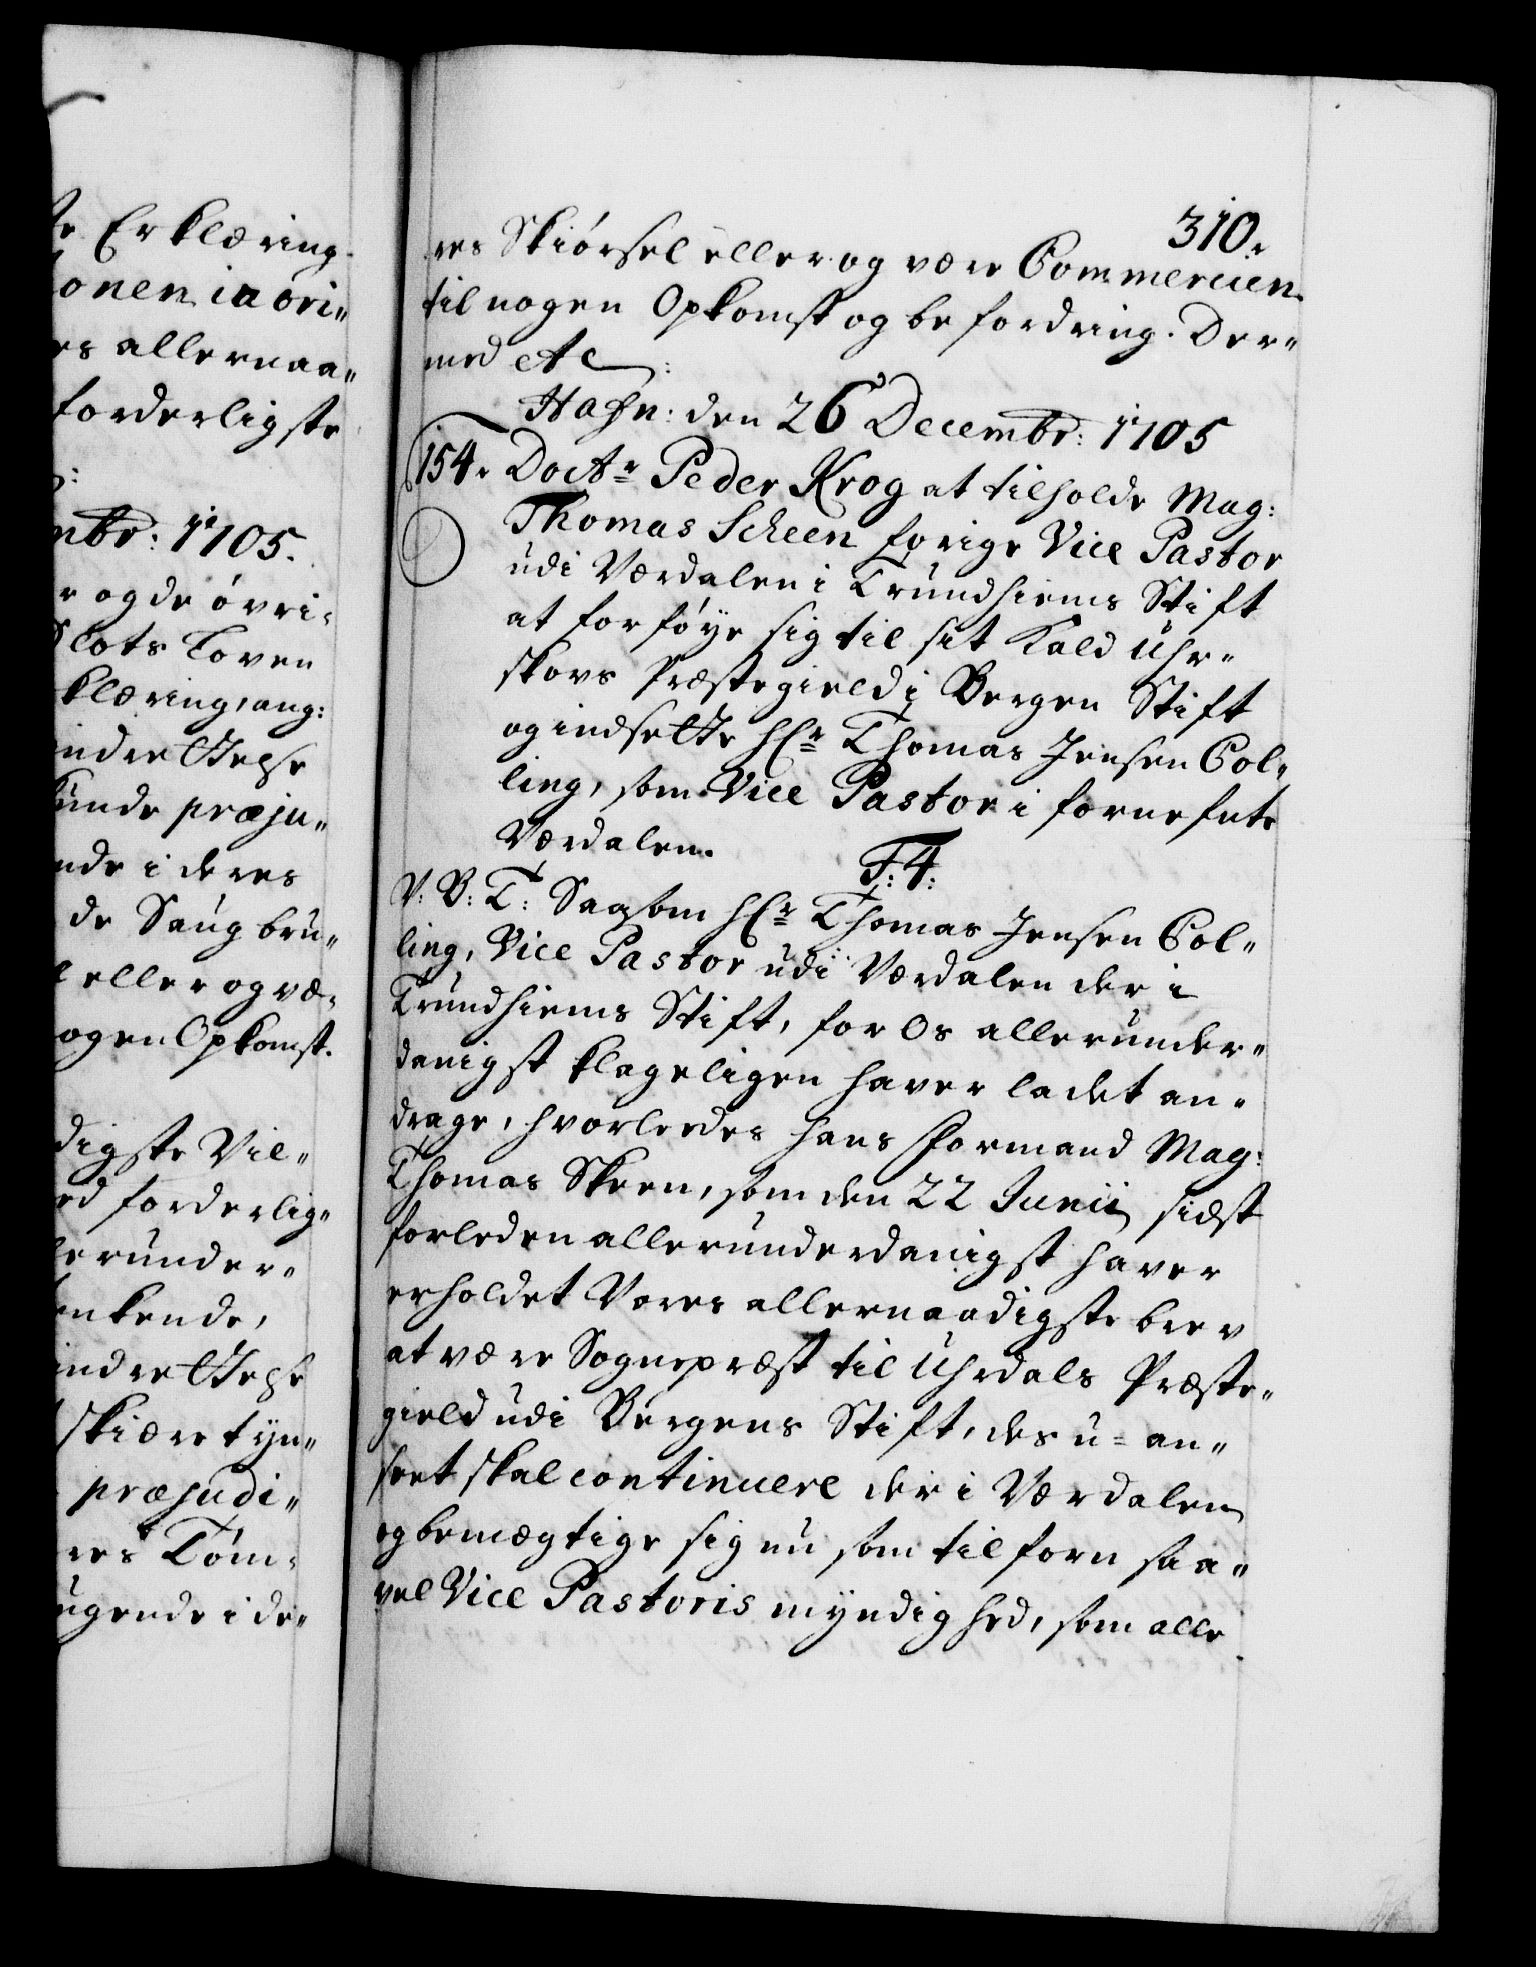 te Erklæring
onen in ori„
es allernaa„
forderligste
mbr: 1705.
r og de øvri„
Slots Loven
klæring, ang:
indrettelse
kunde præju„
nde i deres
de Saugbru„
l eller og væ„
ogen Opkomst.
digste Vil„
ed forderlig„
lerunder„
enkende,
indrettelse
skiære tyn„
præjudi„
res Tøm„
ugende i de„
310.
res Skiørsel eller og være Commercien
til nogen Opkomst og befordring. Der„
med etc:
Hafn: den 26 Decembr: 1705
154. Doctr Peder Krog at tilholde Mag:
Thomas Scheen forige Vice Pastor
udi Værdalen i Trundhiems Stift
at forføye sig til sit Kald Uhr„
skovs Præstegield i Bergen Stift
og indsette Hr Thomas Jensen Col„
ling, som Vice Pastor i fornefnte
Værdalen.
F: 4:
V: B: T: Saasom Hr Thomas Jensen Col„
ling, Vice Pastor udi Værdalen der i
Trundhiems Stift, for Os allerunder„
danigst klageligen haver ladet an„
drage, hvorledes hans Formand Mag:
Thomas Skeen, som den 22 Junii sidst
forleden allerunderdanigst haver
erholdet Vores allernaadigste brev
at være Sognepræst til Uhrdals Præste„
gield udi Bergens Stift, des u=an„
seet skal continuere der i Værdalen
og bemægtige sig nu som tilforn saa„
vel Vice Pastoris myndighed, som alle